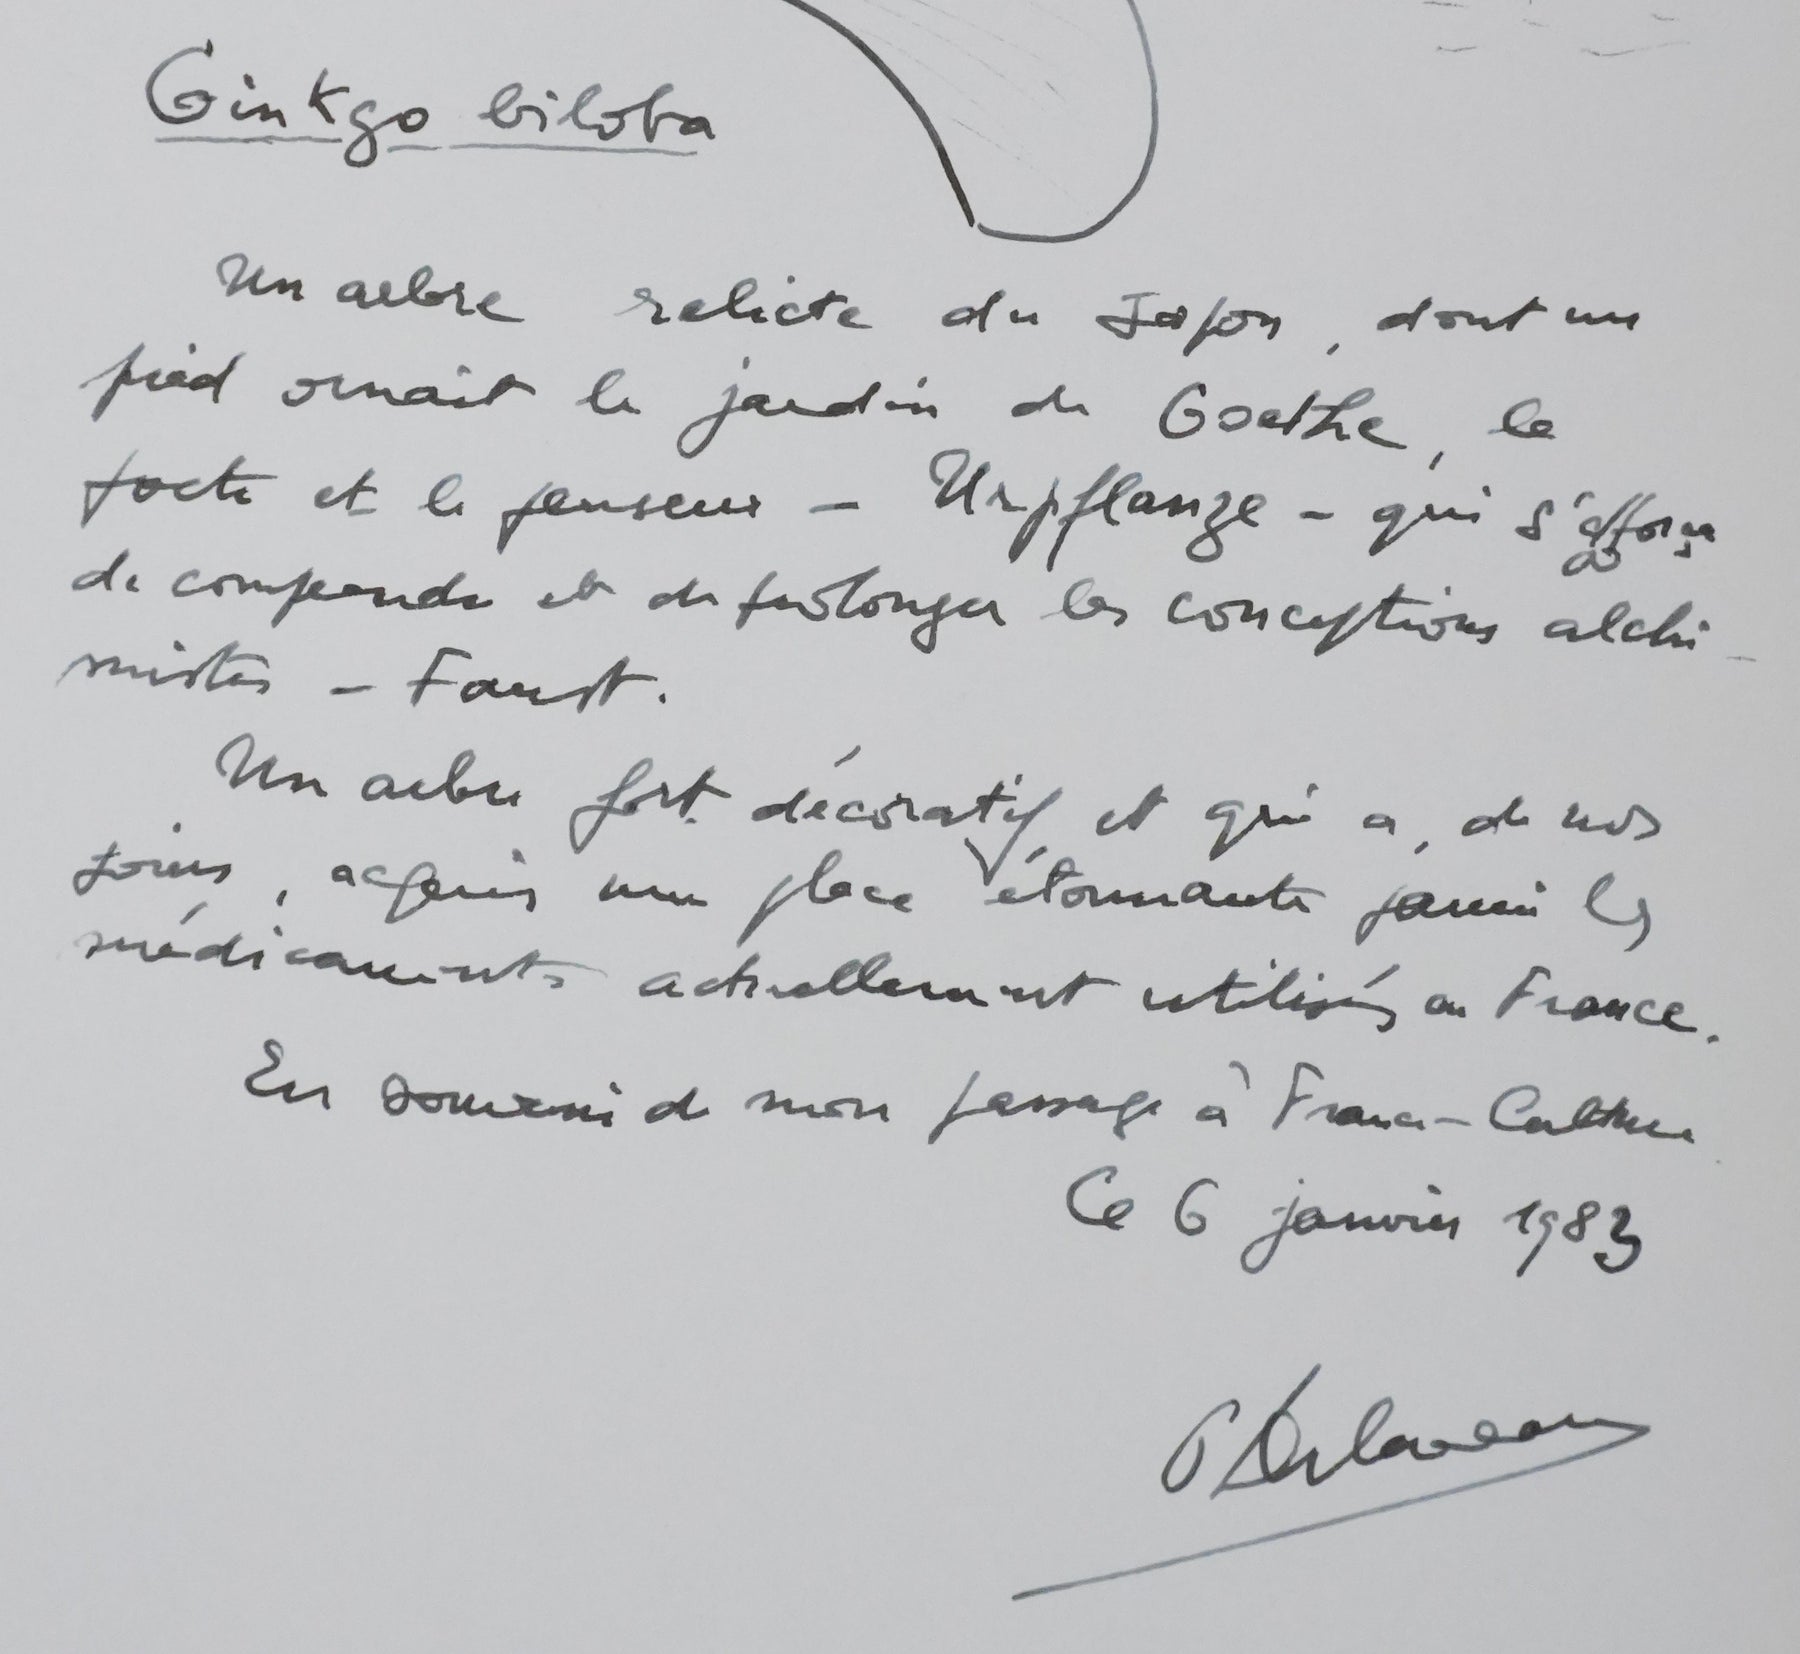 Ginkgo biloba
Un arbre relicte du Japon, dont un
pied ornait le jardin de Goethe, le
poète et le penseur – Urpflanze – qui s'efforça
de comprendre et de prolonger les conceptions alchi-
mistes – Faust.
Un arbre fort décoratif, et qui a, de nos
jours, acquis une place étonnante parmi les
médicaments actuellement utilisés en France.
En souvenir de mon passage à France-Culture
Ce 6 janvier 1983
P Delaveau